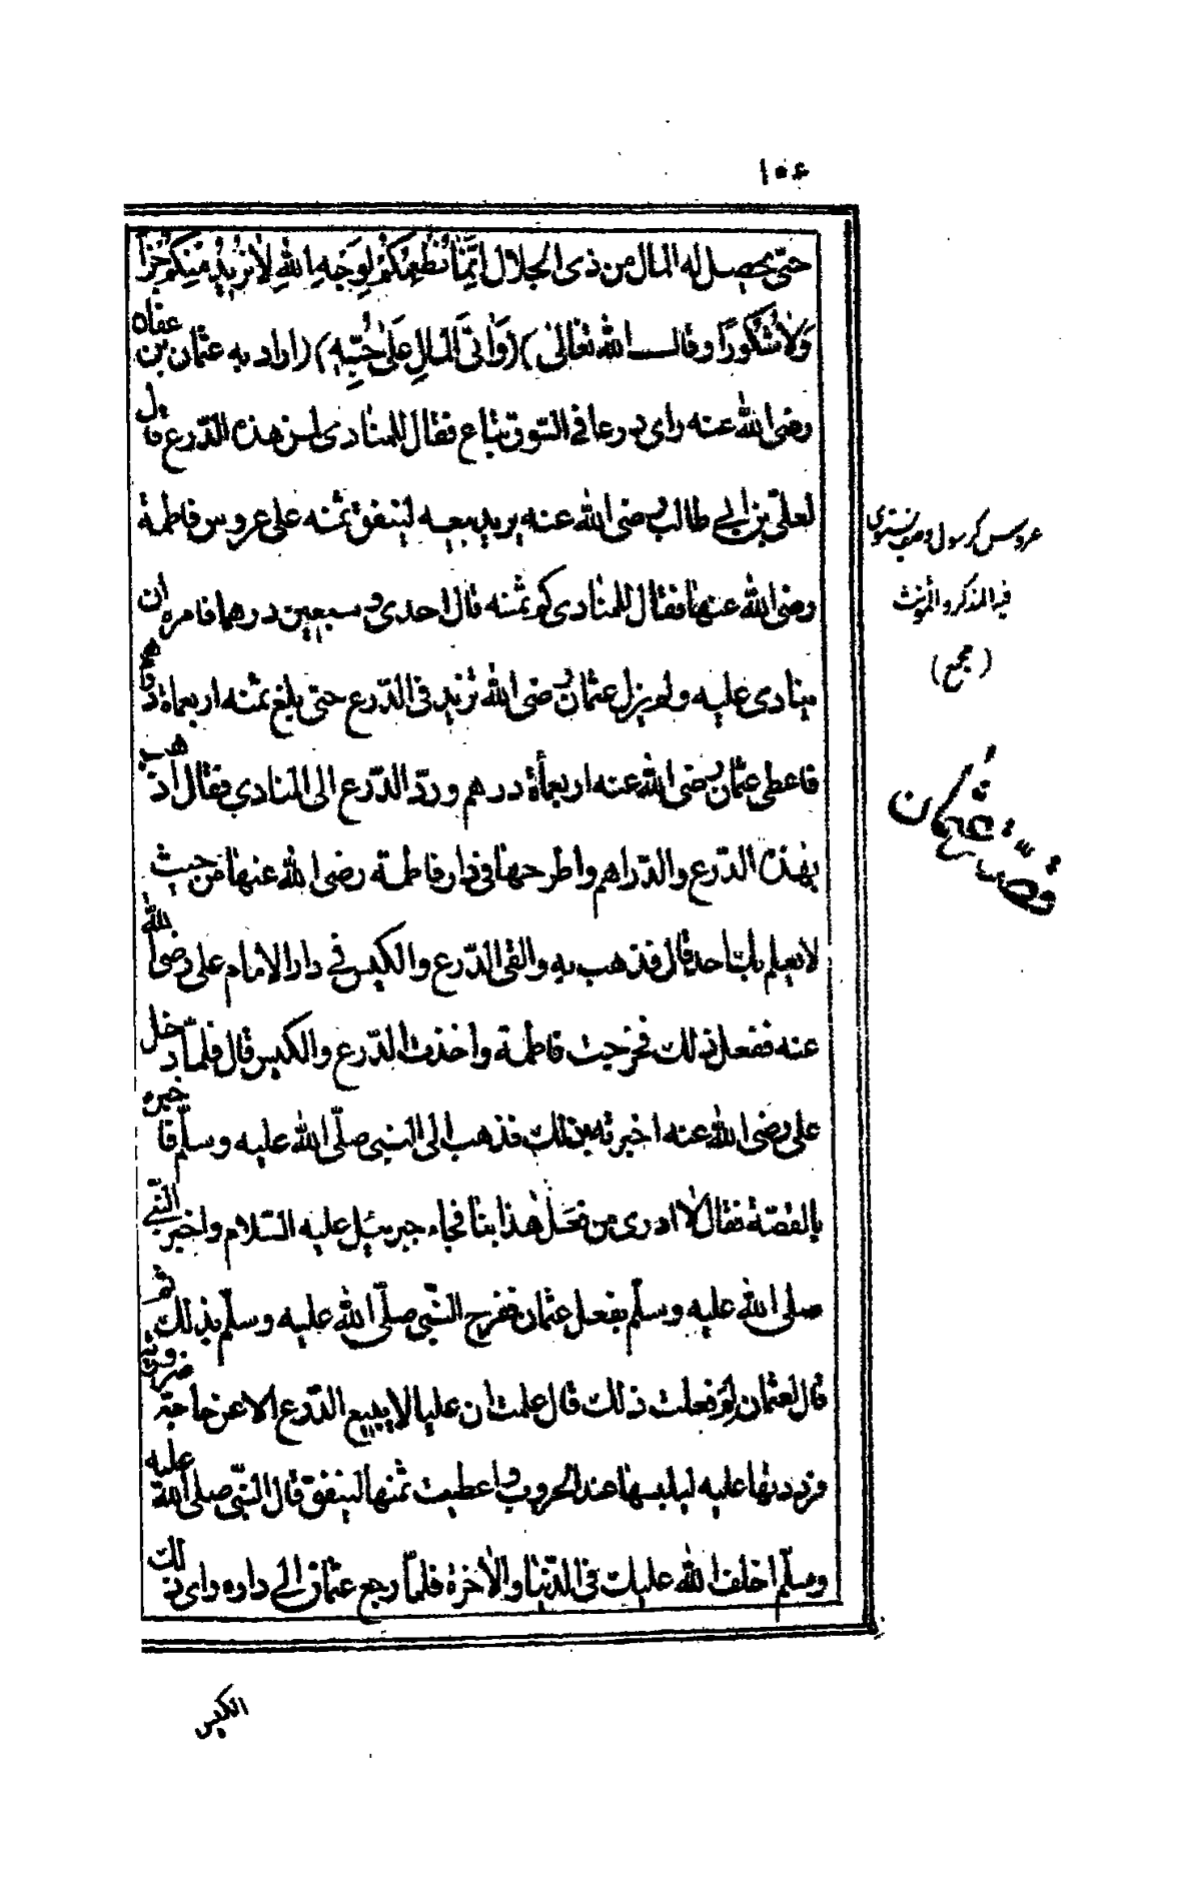 ١٠٤
حتّى يحصل له المال من ذى الجلال اِنَّمَا نُطْعِمُكُمْ لِوَجْهِ اللهِ لَا نُرِيدُ مِنْكُمْ جَزَآءً
وَلَا شُكُورًا وقالــ الله تعالى ﴾ (وَاٰتَى الْمَالَ عَلٰى حُبِّهٖ) (اراد به عثمان بن عفان
رضى الله عنه راى درعا فى السّوق تباع فقال للمنادى لمن هذه الدّرع قال
لعلىّ بن ابى طالب رضى الله عنه يريد بيعه لينفق ثمنه على عروس فاطمة
رضى الله عنها فقال للمنادى كم ثمنه قال احدى و سبعين درهما فامره ان
ينادى عليه ولم يزل عثمان رضى الله تزيد فى الدّرع حتى بلغ ثمنه اربعمأة درهم
فاعطى عثمان رضى الله عنه اربعمأة درهم وردّ الدّرع الى المنادى فقال اذهب
بهذه الدّرع والدّراهم واطرحها فى دار فاطمة رضى الله عنها من حيث
لا يعلم بك احد قال فذهب به والقى الدّرع والكيس فى دار الامام على رضى الله
عنه ففعل ذلك فخرجت فاطمة واخذت الدّرع والكيس قال فلمّا دخل
على رضى الله عنه اخبرته بذلك فذهب الى النبى صلّى الله عليه وسلّم فاخبره
بالقصّة فقال لا ادرى من فعل هذا بنا فجاء جبريئيل عليه السّلام واخبر النّبى
صلى الله عليه وسلّم بفعل عثمان ففرح النّبى صلّى الله عليه وسلّم بذلك ثم
قال لعثمان لم فعلت ذلك قال علمت ان عليا لا يبيع الدّرع الا عن حاجة ضرورية
فرددتها عليه ليلبسها عند الحروب و اعطيت ثمنها لينفق قال النّبى صلى الله عليه
وسلّم اخلف الله عليك فى الدّنيا والآخرة فلمّا رجع عثمان الى داره راى ذلك
الكيس
عروس كرسول وصف يستوى
فيه المذكر والمؤنث
(مجمع)
قصّة عثمان